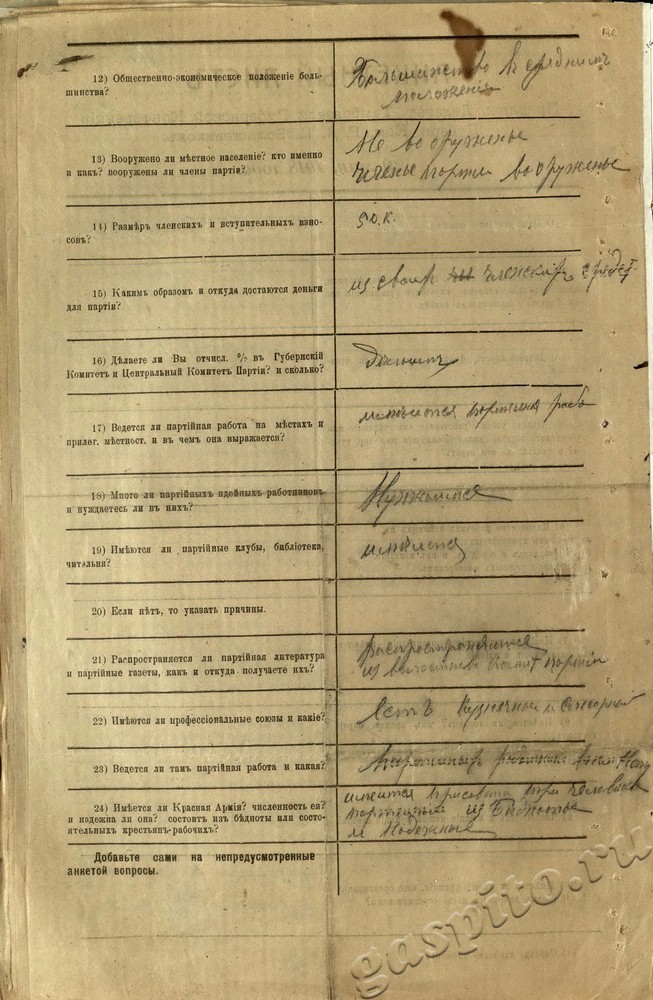 12) Общественно-экономическое положеніе боль-
шинства?
Большинство в среднимъ
положении
13) Вооружено ли мѣстное населеніе? кто именно
и какъ? вооружены ли члены партіи?
Не вооруженые
партии вооруженые
14) Размѣръ членскихъ и вступительныхъ взно-
совъ?
50.к.
15) Какимъ образомъ и откуда достаются деньги
для партіи?
из своих членских средст.
16) Дѣлаете ли Вы отчисл. % въ Губернскій
Комитетъ и Центральный Комитетъ Партіи? и сколько?
17) Ведется ли партійная работа на мѣстахъ и
прилег. мѣстност. и въ чемъ она выражается?
18) Много ли партійныхъ идейныхъ работниковъ
и нуждаетесь ли въ нихъ?
Нуждаимся
19) Имѣются ли партійные клубы, библіотека,
читальня?
имѣится
20) Если нѣтъ, то указать причины.
21) Распространяется ли партійная литература
и партійные газеты, какъ и откуда получаете ихъ?
распространяится
из партии
22) Имѣются ли профессіональные союзы и какіе?
Есть Кузнечный и
23) Ведется ли тамъ партійная работа и какая?
24) Имѣется ли Красная Армія? численность ея?
и надежна ли она? состоитъ изъ бѣдноты или состо-
ятельныхъ крестьян-рабочихъ?
имѣится три человека
из бедноты
и Надежные
Добавьте сами на непредусмотренные
анкетой вопросы.
gaspito.ru